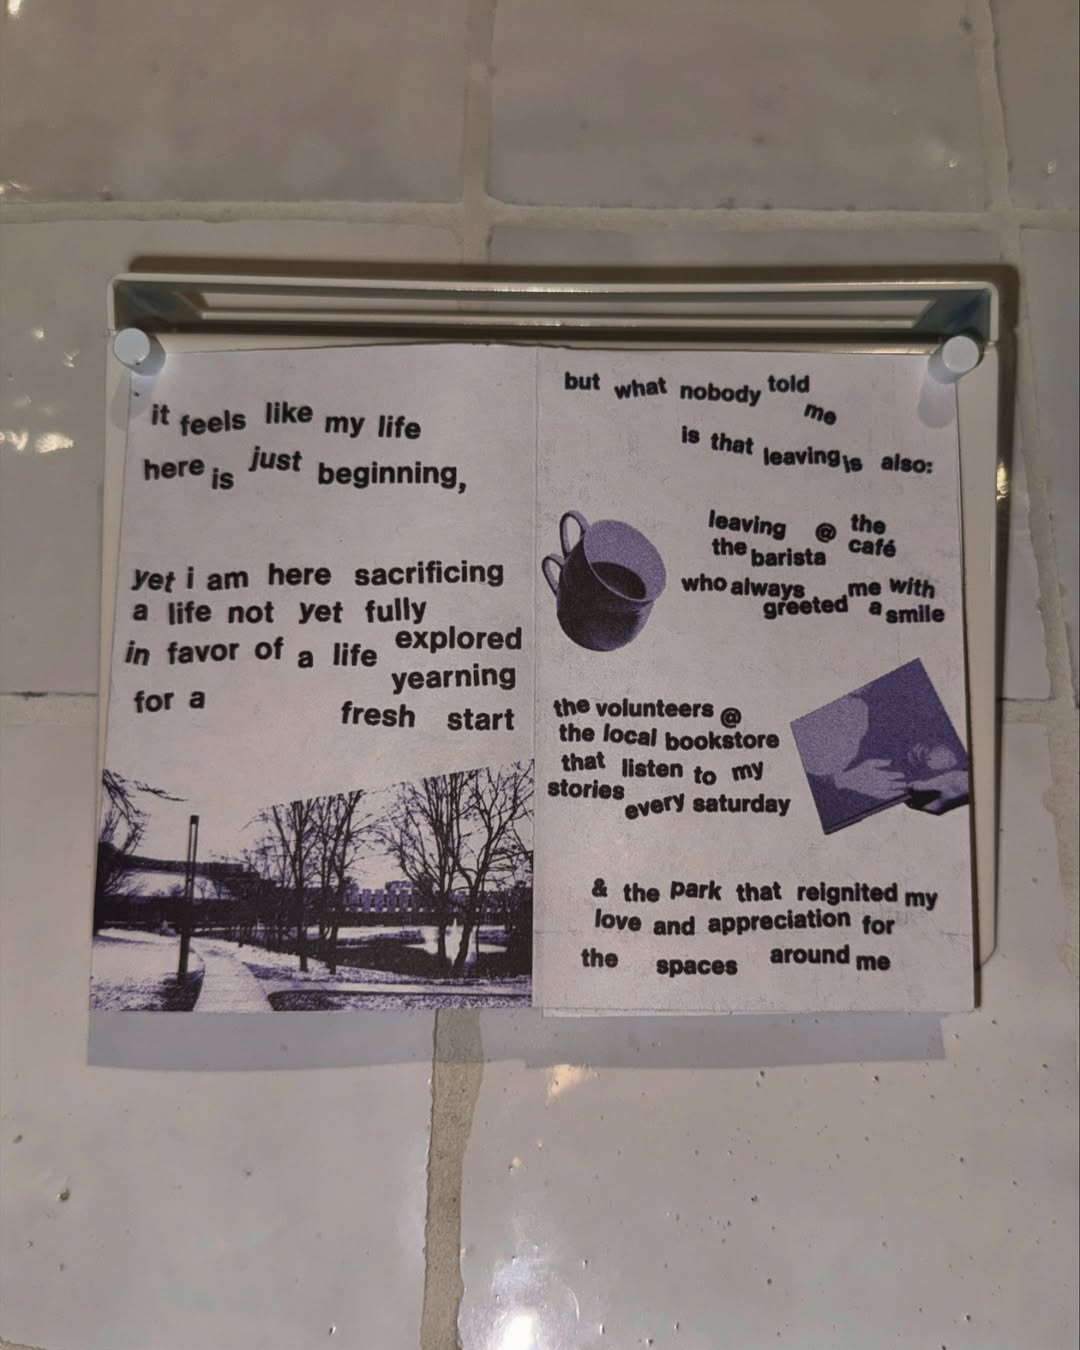 it feels like my life
here is just beginning,
yet i am here sacrificing
a life not yet fully
explored
in favor of a life
yearning
for a
fresh start
but what nobody told
me
is that leaving is also:
leaving @ the
the barista café
who always me with
greeted a smile
the volunteers @
the local bookstore
that listen to my
stories
every saturday
& the park that reignited my
love and appreciation for
the spaces around me